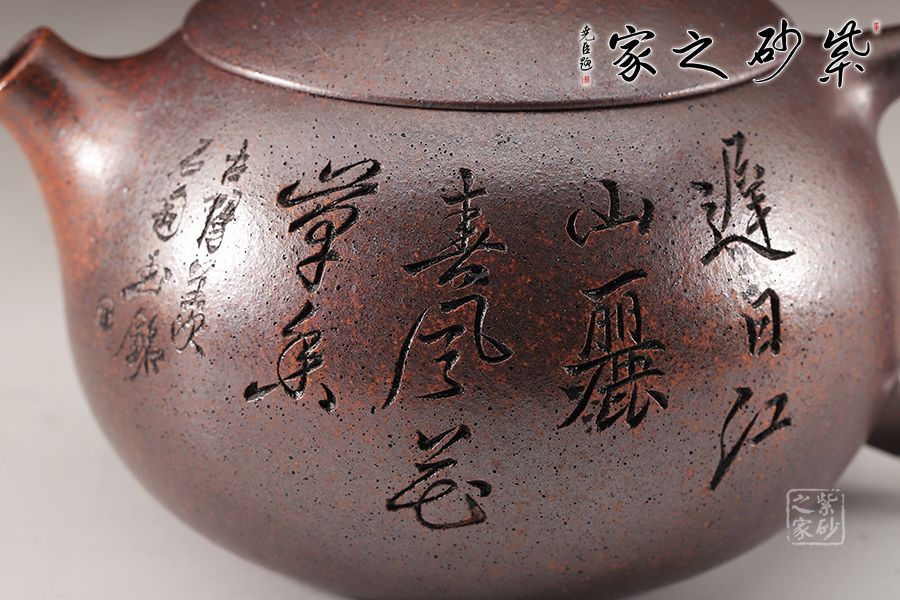 紫砂之家
遲日江
山麗
春風花
草香
紫砂
之家